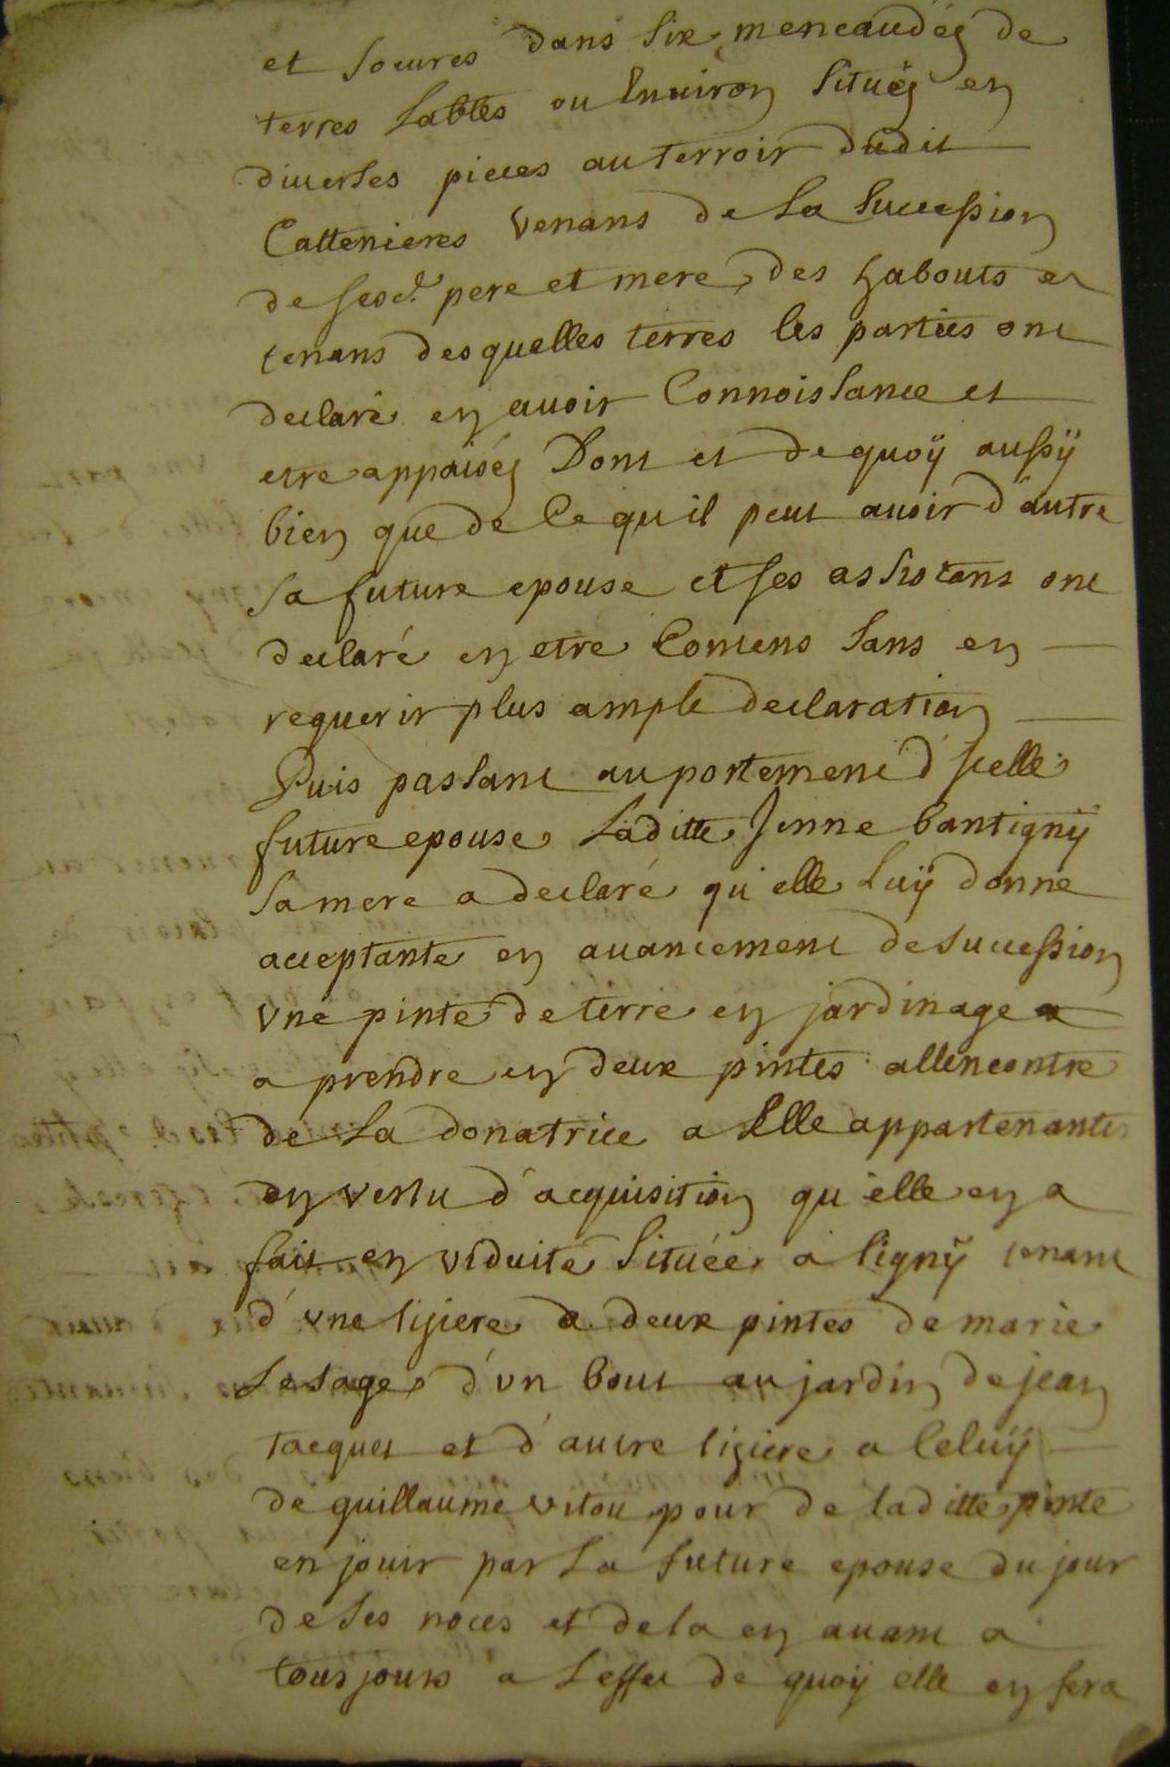 et soeures dans six mencaudées de
terres Lables ou Environ Situés en
diuerses pieces au terroir dudit
Cattenieres venans de La Succession
de sesd. pere et mere, des habouts et
tenans desquelles terres les parties ont
declaré en auoir Connoissance et
etre appaisés Dont et de quoÿ aussÿ
bien que de Ce qu'il peut auoir d'autre
sa future epouse et ses assistans ont
declaré en etre Contens Sans en
requerir plus ample declaration
Puis passant au portement d'Jcelle
future epouse, Laditte Jenne bantignÿ
sa mere a declaré qu'elle Luÿ donne
acceptante en auancement de succession
vne pinte de terre en jardinage
a prendre en deux pintes allencontre
de La donatrice a Elle appartenante
en vertu d'acquisition qu'elle en a
fait en viduité Située a lignÿ tenant
d'vne lisiere a deux pintes de marie
Lesage, d'vn bout au jardin de jean
tacquet et d'autre lisiere a Celuÿ
de guillaume vitou pour de laditte pinte
en jouir par La future epouse du jour
de ses noces et de la en auant a
tous jours a L'effet de quoÿ elle en sera